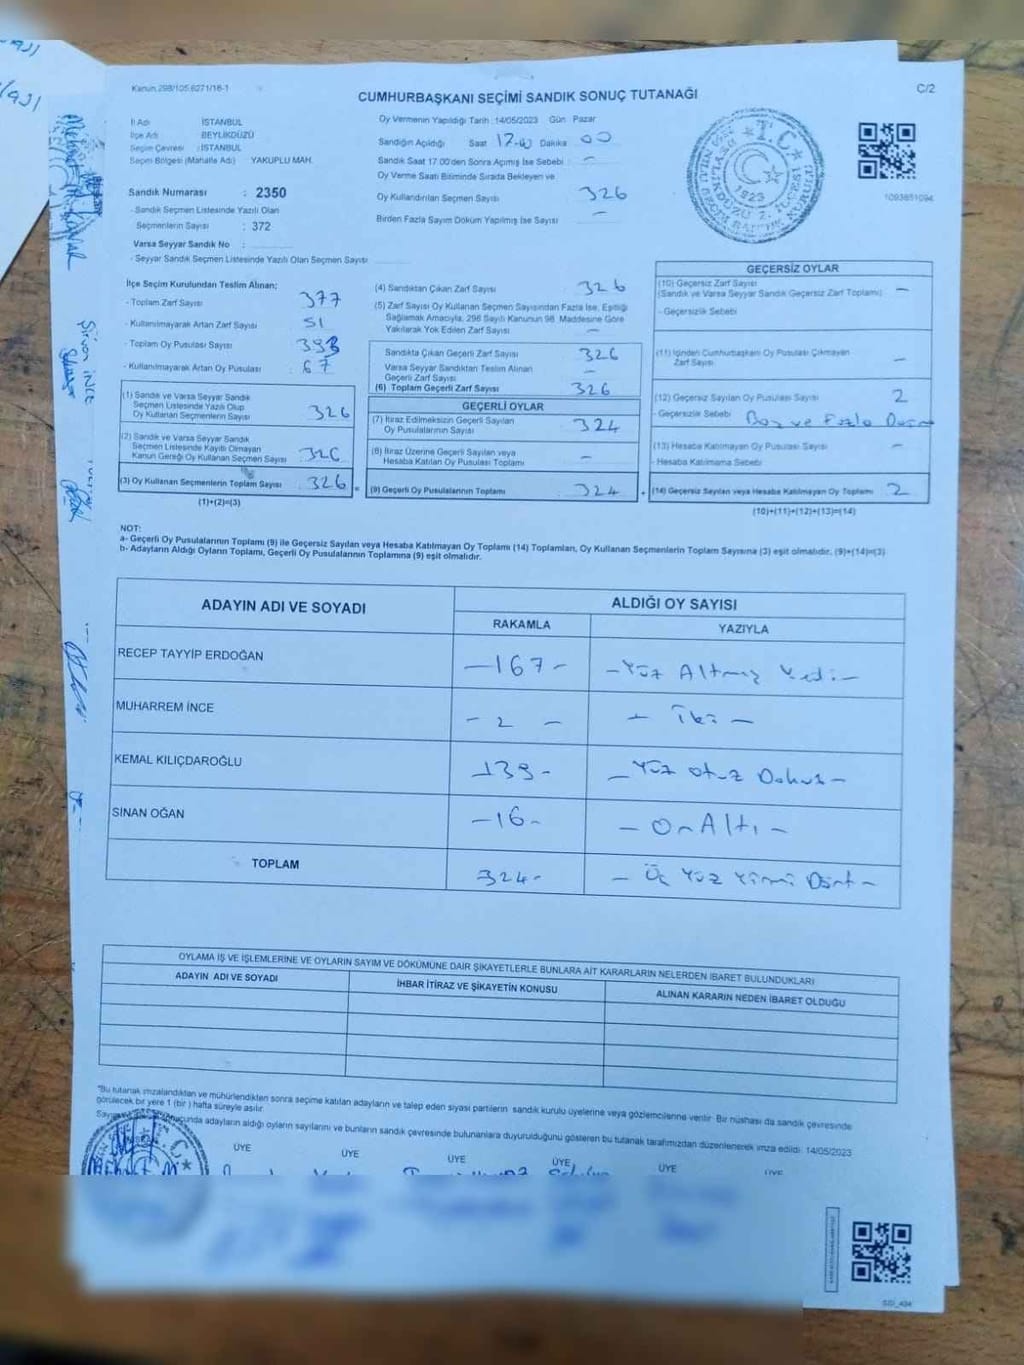 Kanun.298/105.6271/16-1
C/2
CUMHURBAŞKANI SEÇİMİ SANDIK SONUÇ TUTANAĞI
İl Adı İSTANBUL
İlçe Adı BEYLİKDÜZÜ
Seçim Çevresi : İSTANBUL
Seçim Bölgesi (Mahalle Adı) YAKUPLU MAH.
Sandık Numarası : 2350
- Sandık Seçmen Listesinde Yazılı Olan
Seçmenlerin Sayısı : 372
Varsa Seyyar Sandık No :
- Seyyar Sandık Seçmen Listesinde Yazılı Olan Seçmen Sayısı
Oy Vermenin Yapıldığı Tarih : 14/05/2023 Gün Pazar
Sandığın Açıldığı Saat 17.00 Dakika 00
Sandık Saat 17.00'den Sonra Açılmış İse Sebebi : -
Oy Verme Saati Bitiminde Sırada Bekleyen ve
Oy Kullandırılan Seçmen Sayısı 326
Birden Fazla Sayım Döküm Yapılmış İse Sayısı -
1923
1093851094
İlçe Seçim Kurulundan Teslim Alınan;
- Toplam Zarf Sayısı : 377
- Kullanılmayarak Artan Zarf Sayısı : 51
- Toplam Oy Pusulası Sayısı : 393
- Kullanılmayarak Artan Oy Pusulası : 67
(1) Sandık ve Varsa Seyyar Sandık
Seçmen Listesinde Yazılı Olup
Oy Kullanan Seçmenlerin Sayısı 326
(2) Sandık ve Varsa Seyyar Sandık
Seçmen Listesinde Kayıtlı Olmayan
Kanun Gereği Oy Kullanan Seçmen Sayısı 326
(3) Oy Kullanan Seçmenlerin Toplam Sayısı 326
(1)+(2)=(3)
(4) Sandıktan Çıkan Zarf Sayısı : 326
(5) Zarf Sayısı Oy Kullanan Seçmen Sayısından Fazla İse, Eşitliği
Sağlamak Amacıyla, 298 Sayılı Kanunun 98. Maddesine Göre
Yakılarak Yok Edilen Zarf Sayısı -
Sandıkta Çıkan Geçerli Zarf Sayısı 326
Varsa Seyyar Sandıktan Teslim Alınan
Geçerli Zarf Sayısı -
(6) Toplam Geçerli Zarf Sayısı 326
GEÇERLİ OYLAR
(7) İtiraz Edilmeksizin Geçerli Sayılan
Oy Pusulalarının Sayısı 324
(8) İtiraz Üzerine Geçerli Sayılan veya
Hesaba Katılan Oy Pusulası Toplamı -
(9) Geçerli Oy Pusulalarının Toplamı 324
GEÇERSİZ OYLAR
(10) Geçersiz Zarf Sayısı
(Sandık ve Varsa Seyyar Sandık Geçersiz Zarf Toplamı) -
- Geçersizlik Sebebi
(11) İçinden Cumhurbaşkanı Oy Pusulası Çıkmayan
Zarf Sayısı -
(12) Geçersiz Sayılan Oy Pusulası Sayısı 2
- Geçersizlik Sebebi Boş ve Fazla
(13) Hesaba Katılmayan Oy Pusulası Sayısı -
- Hesaba Katılmama Sebebi
(14) Geçersiz Sayılan veya Hesaba Katılmayan Oy Toplamı 2
(10)+(11)+(12)+(13)=(14)
NOT:
a- Geçerli Oy Pusulalarının Toplamı (9) ile Geçersiz Sayılan veya Hesaba Katılmayan Oy Toplamı (14) Toplamları, Oy Kullanan Seçmenlerin Toplam Sayısına (3) eşit olmalıdır. (9)+(14)=(3)
b- Adayların Aldığı Oyların Toplamı, Geçerli Oy Pusulalarının Toplamına (9) eşit olmalıdır.
ADAYIN ADI VE SOYADI ALDIĞI OY SAYISI
RAKAMLA YAZIYLA
RECEP TAYYİP ERDOĞAN -167- -Yüz Altmış Yedi-
MUHARREM İNCE - 2 - - İki -
KEMAL KILIÇDAROĞLU -139- -Yüz otuz Dokuz-
SİNAN OĞAN -16- - On Altı -
TOPLAM 324- - Üç Yüz Yirmi Dört -
OYLAMA İŞ VE İŞLEMLERİNE VE OYLARIN SAYIM VE DÖKÜMÜNE DAİR ŞİKAYETLERLE BUNLARA AİT KARARLARIN NELERDEN İBARET BULUNDUKLARI
ADAYIN ADI VE SOYADI İHBAR İTİRAZ VE ŞİKAYETİN KONUSU ALINAN KARARIN NEDEN İBARET OLDUĞU
*Bu tutanak imzalandıktan ve mühürlendikten sonra seçime katılan adayların ve talep eden siyasi partilerin sandık kurulu üyelerine veya gözlemcilerine verilir. Bir nüshası da sandık çevresinde
görülecek bir yere 1 (bir) hafta süreyle asılır.
adayların aldığı oyların sayılarını ve bunların sandık çevresinde bulunanlara duyurulduğunu gösteren bu tutanak tarafımızdan düzenlenerek imza edildi. 14/05/2023
ÜYE ÜYE ÜYE ÜYE ÜYE ÜYE